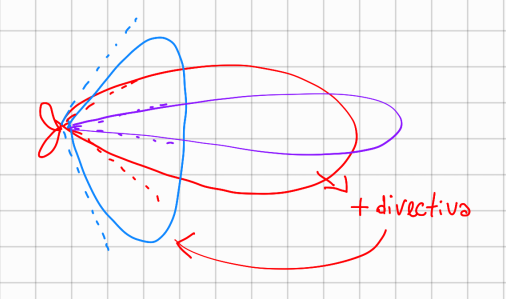 + directiva